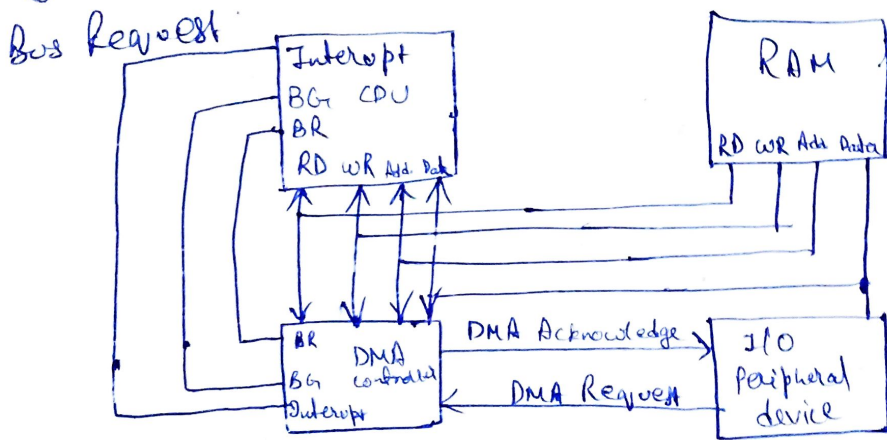 Bus Request
Interopt
BG CPU
BR
RD WR Add. Data
RAM
RD WR Add Data
BR DMA
BG controller
Interopt
DMA Acknowledge
DMA Request
I/O
Peripheral
device